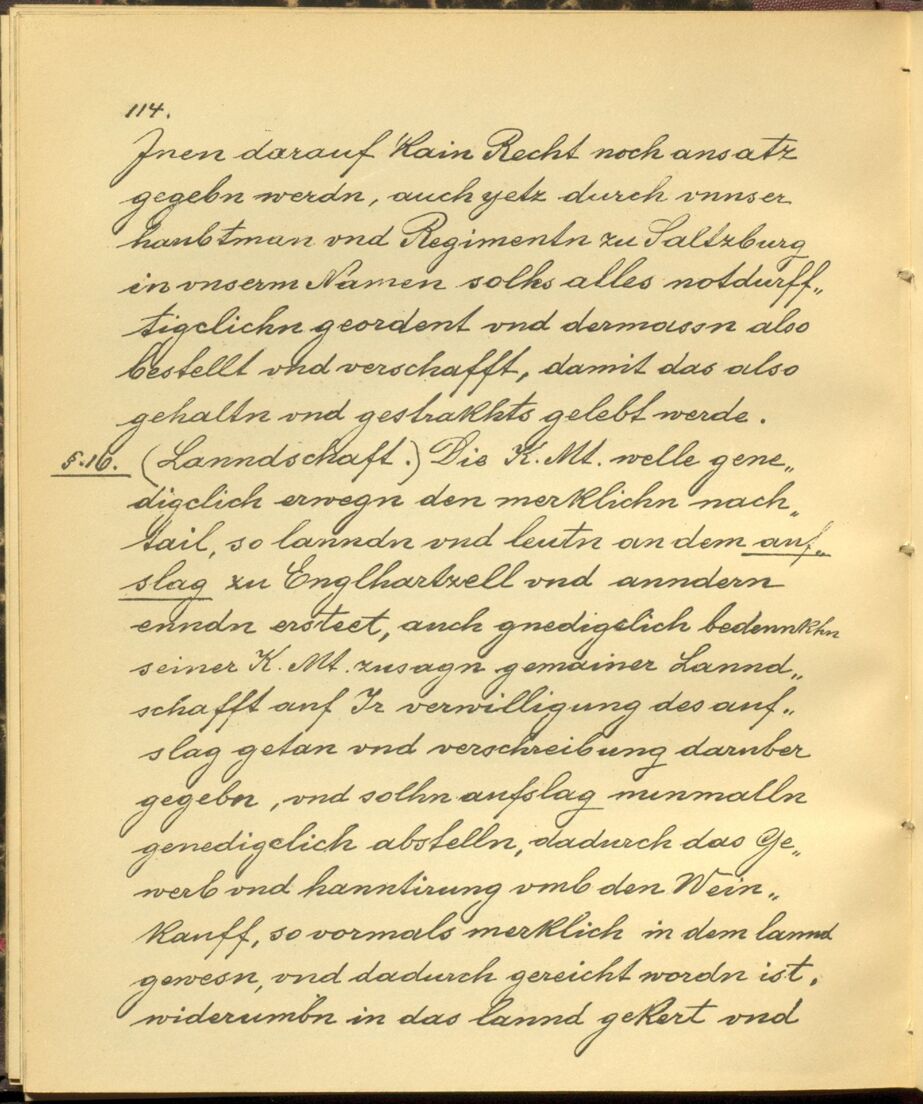 114.
Jnen darauf kain Recht noch ansatz
gegebn werdn, auch yetz durch vnnser
haubtman vnd Regimentn zu Saltzburg
in vnserm Namen solhs alles notdurff„
tigclichn geordent vnd dermassn also
bestellt vnd verschafft, damit das also
gehaltn vnd gestrakhts gelebt werde.
§.16. (Lanndschaft.) Die K. Mt. welle gene„
digclich erwegn den merklichn nach„
tail, so lanndn vnd leutn an dem auf„
slag zu Englhartzell vnd anndern
enndn ersteet, auch gnedigclich bedennkhn
seiner K. Mt. zusagn gemainer Lannd„
schafft auf Ir verwilligung des auf„
slag getan vnd verschreibung daruber
gegebn, vnd solhn aufslag nunmalln
genedigclich abstelln, dadurch das Ge„
werb vnd hanntirung vmb den Wein„
kauff, so vormals merklich in dem lannd
gewesn, vnd dadurch gereicht wordn ist,
widerumbn in das lannd gekert vnd